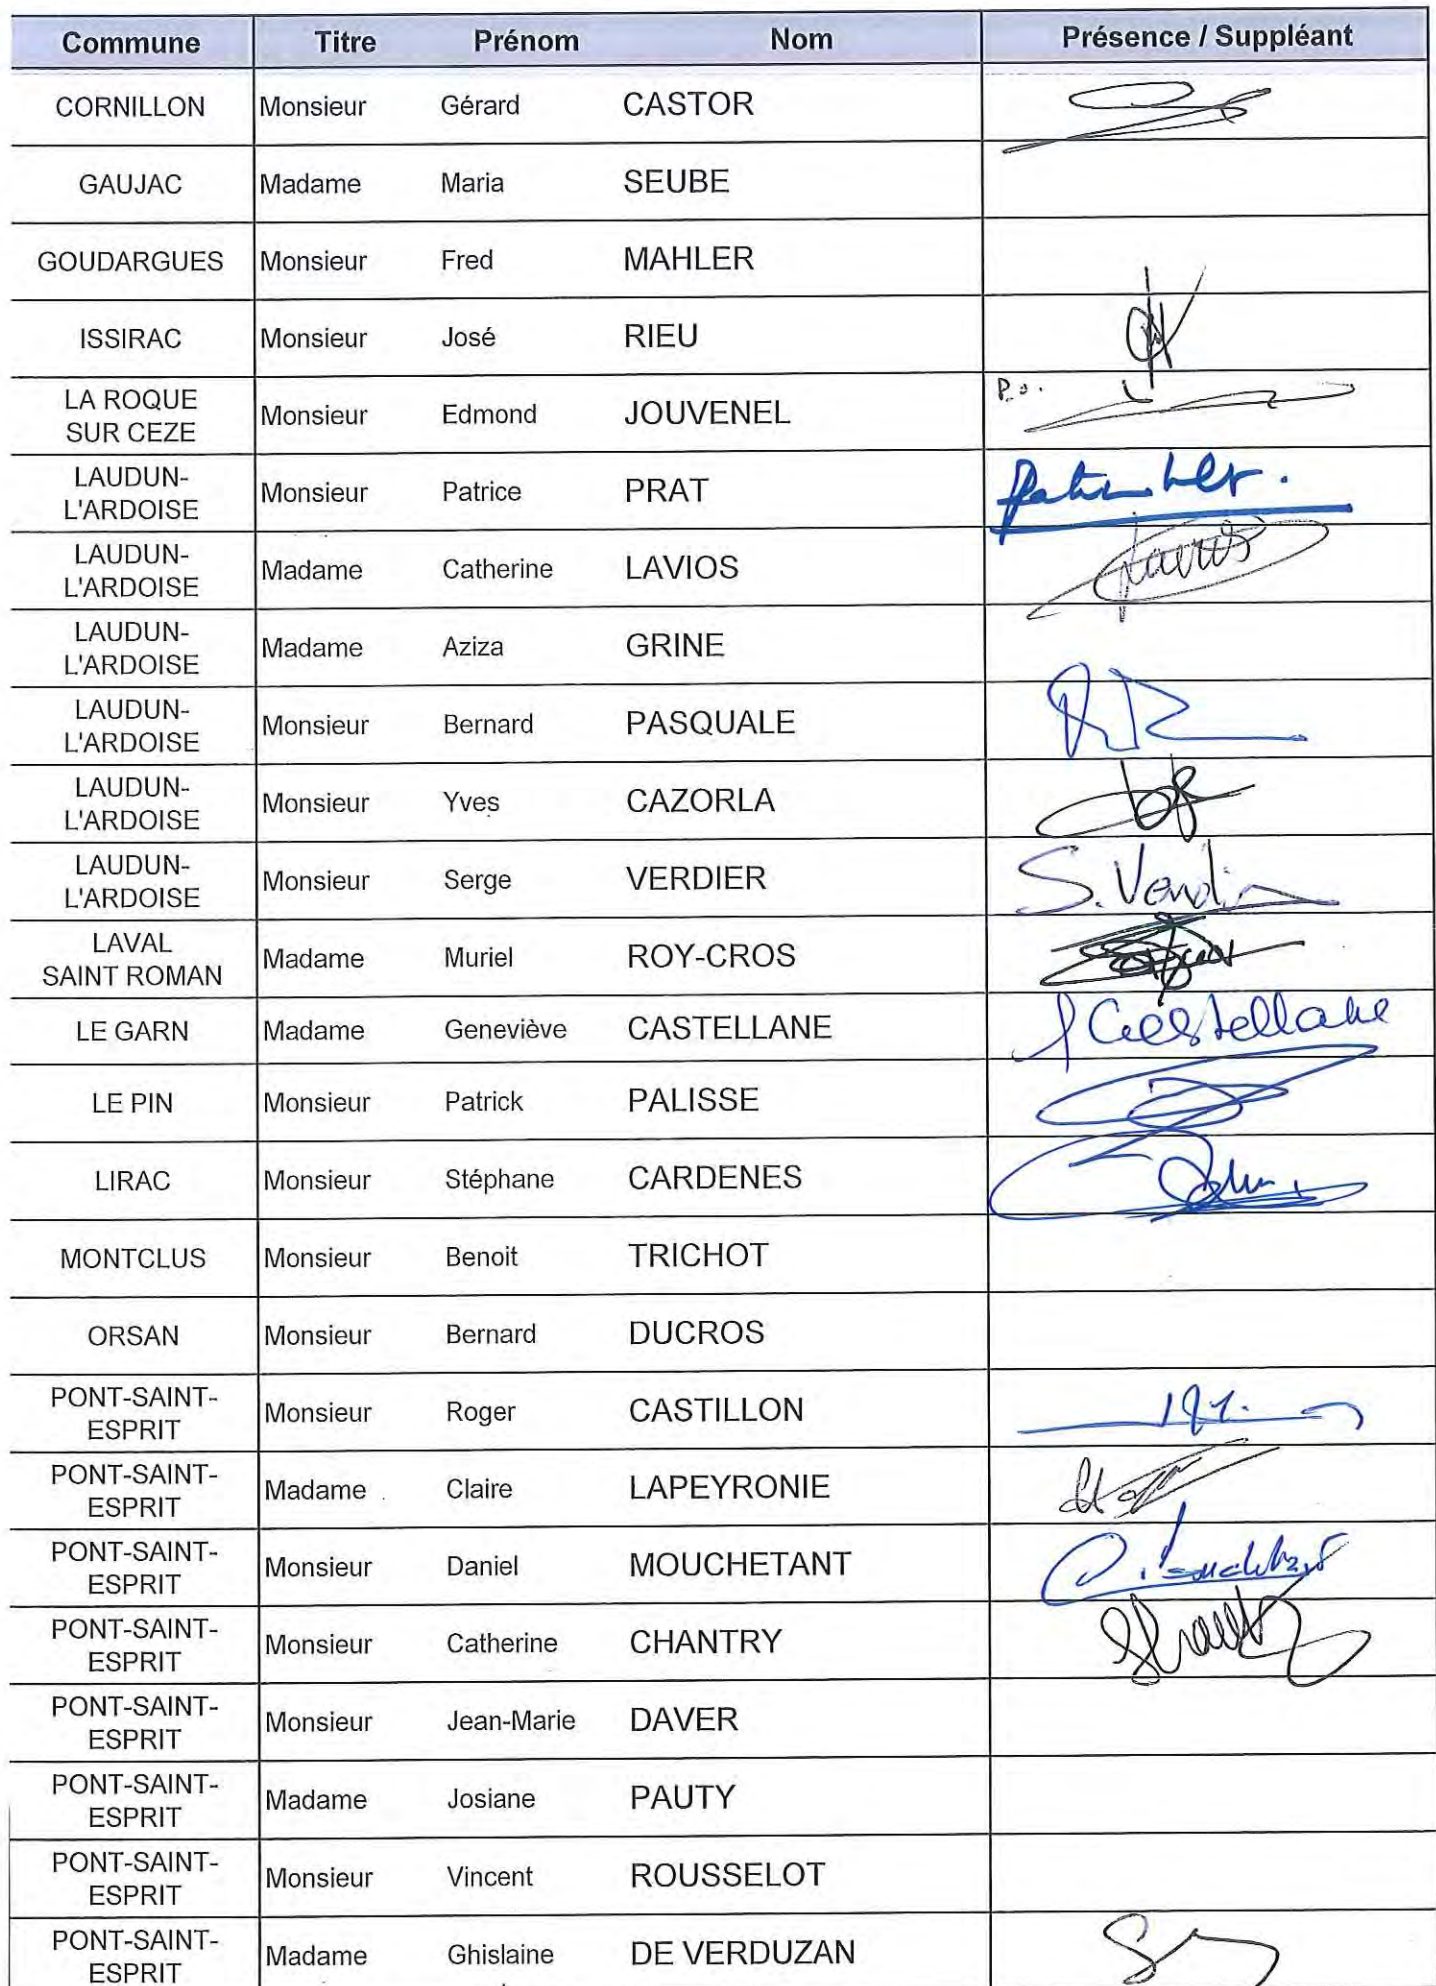 Commune Titre Prénom Nom Présence / Suppléant
CORNILLON Monsieur Gérard CASTOR
GAUJAC Madame Maria SEUBE
GOUDARGUES Monsieur Fred MAHLER
ISSIRAC Monsieur José RIEU
LA ROQUE
SUR CEZE Monsieur Edmond JOUVENEL P.o.
LAUDUN-
L'ARDOISE Monsieur Patrice PRAT
LAUDUN-
L'ARDOISE Madame Catherine LAVIOS
LAUDUN-
L'ARDOISE Madame Aziza GRINE
LAUDUN-
L'ARDOISE Monsieur Bernard PASQUALE
LAUDUN-
L'ARDOISE Monsieur Yves CAZORLA
LAUDUN-
L'ARDOISE Monsieur Serge VERDIER S. Verdier
LAVAL
SAINT ROMAN Madame Muriel ROY-CROS
LE GARN Madame Geneviève CASTELLANE Castellane
LE PIN Monsieur Patrick PALISSE
LIRAC Monsieur Stéphane CARDENES
MONTCLUS Monsieur Benoit TRICHOT
ORSAN Monsieur Bernard DUCROS
PONT-SAINT-
ESPRIT Monsieur Roger CASTILLON
PONT-SAINT-
ESPRIT Madame Claire LAPEYRONIE
PONT-SAINT-
ESPRIT Monsieur Daniel MOUCHETANT
PONT-SAINT-
ESPRIT Monsieur Catherine CHANTRY
PONT-SAINT-
ESPRIT Monsieur Jean-Marie DAVER
PONT-SAINT-
ESPRIT Madame Josiane PAUTY
PONT-SAINT-
ESPRIT Monsieur Vincent ROUSSELOT
PONT-SAINT-
ESPRIT Madame Ghislaine DE VERDUZAN